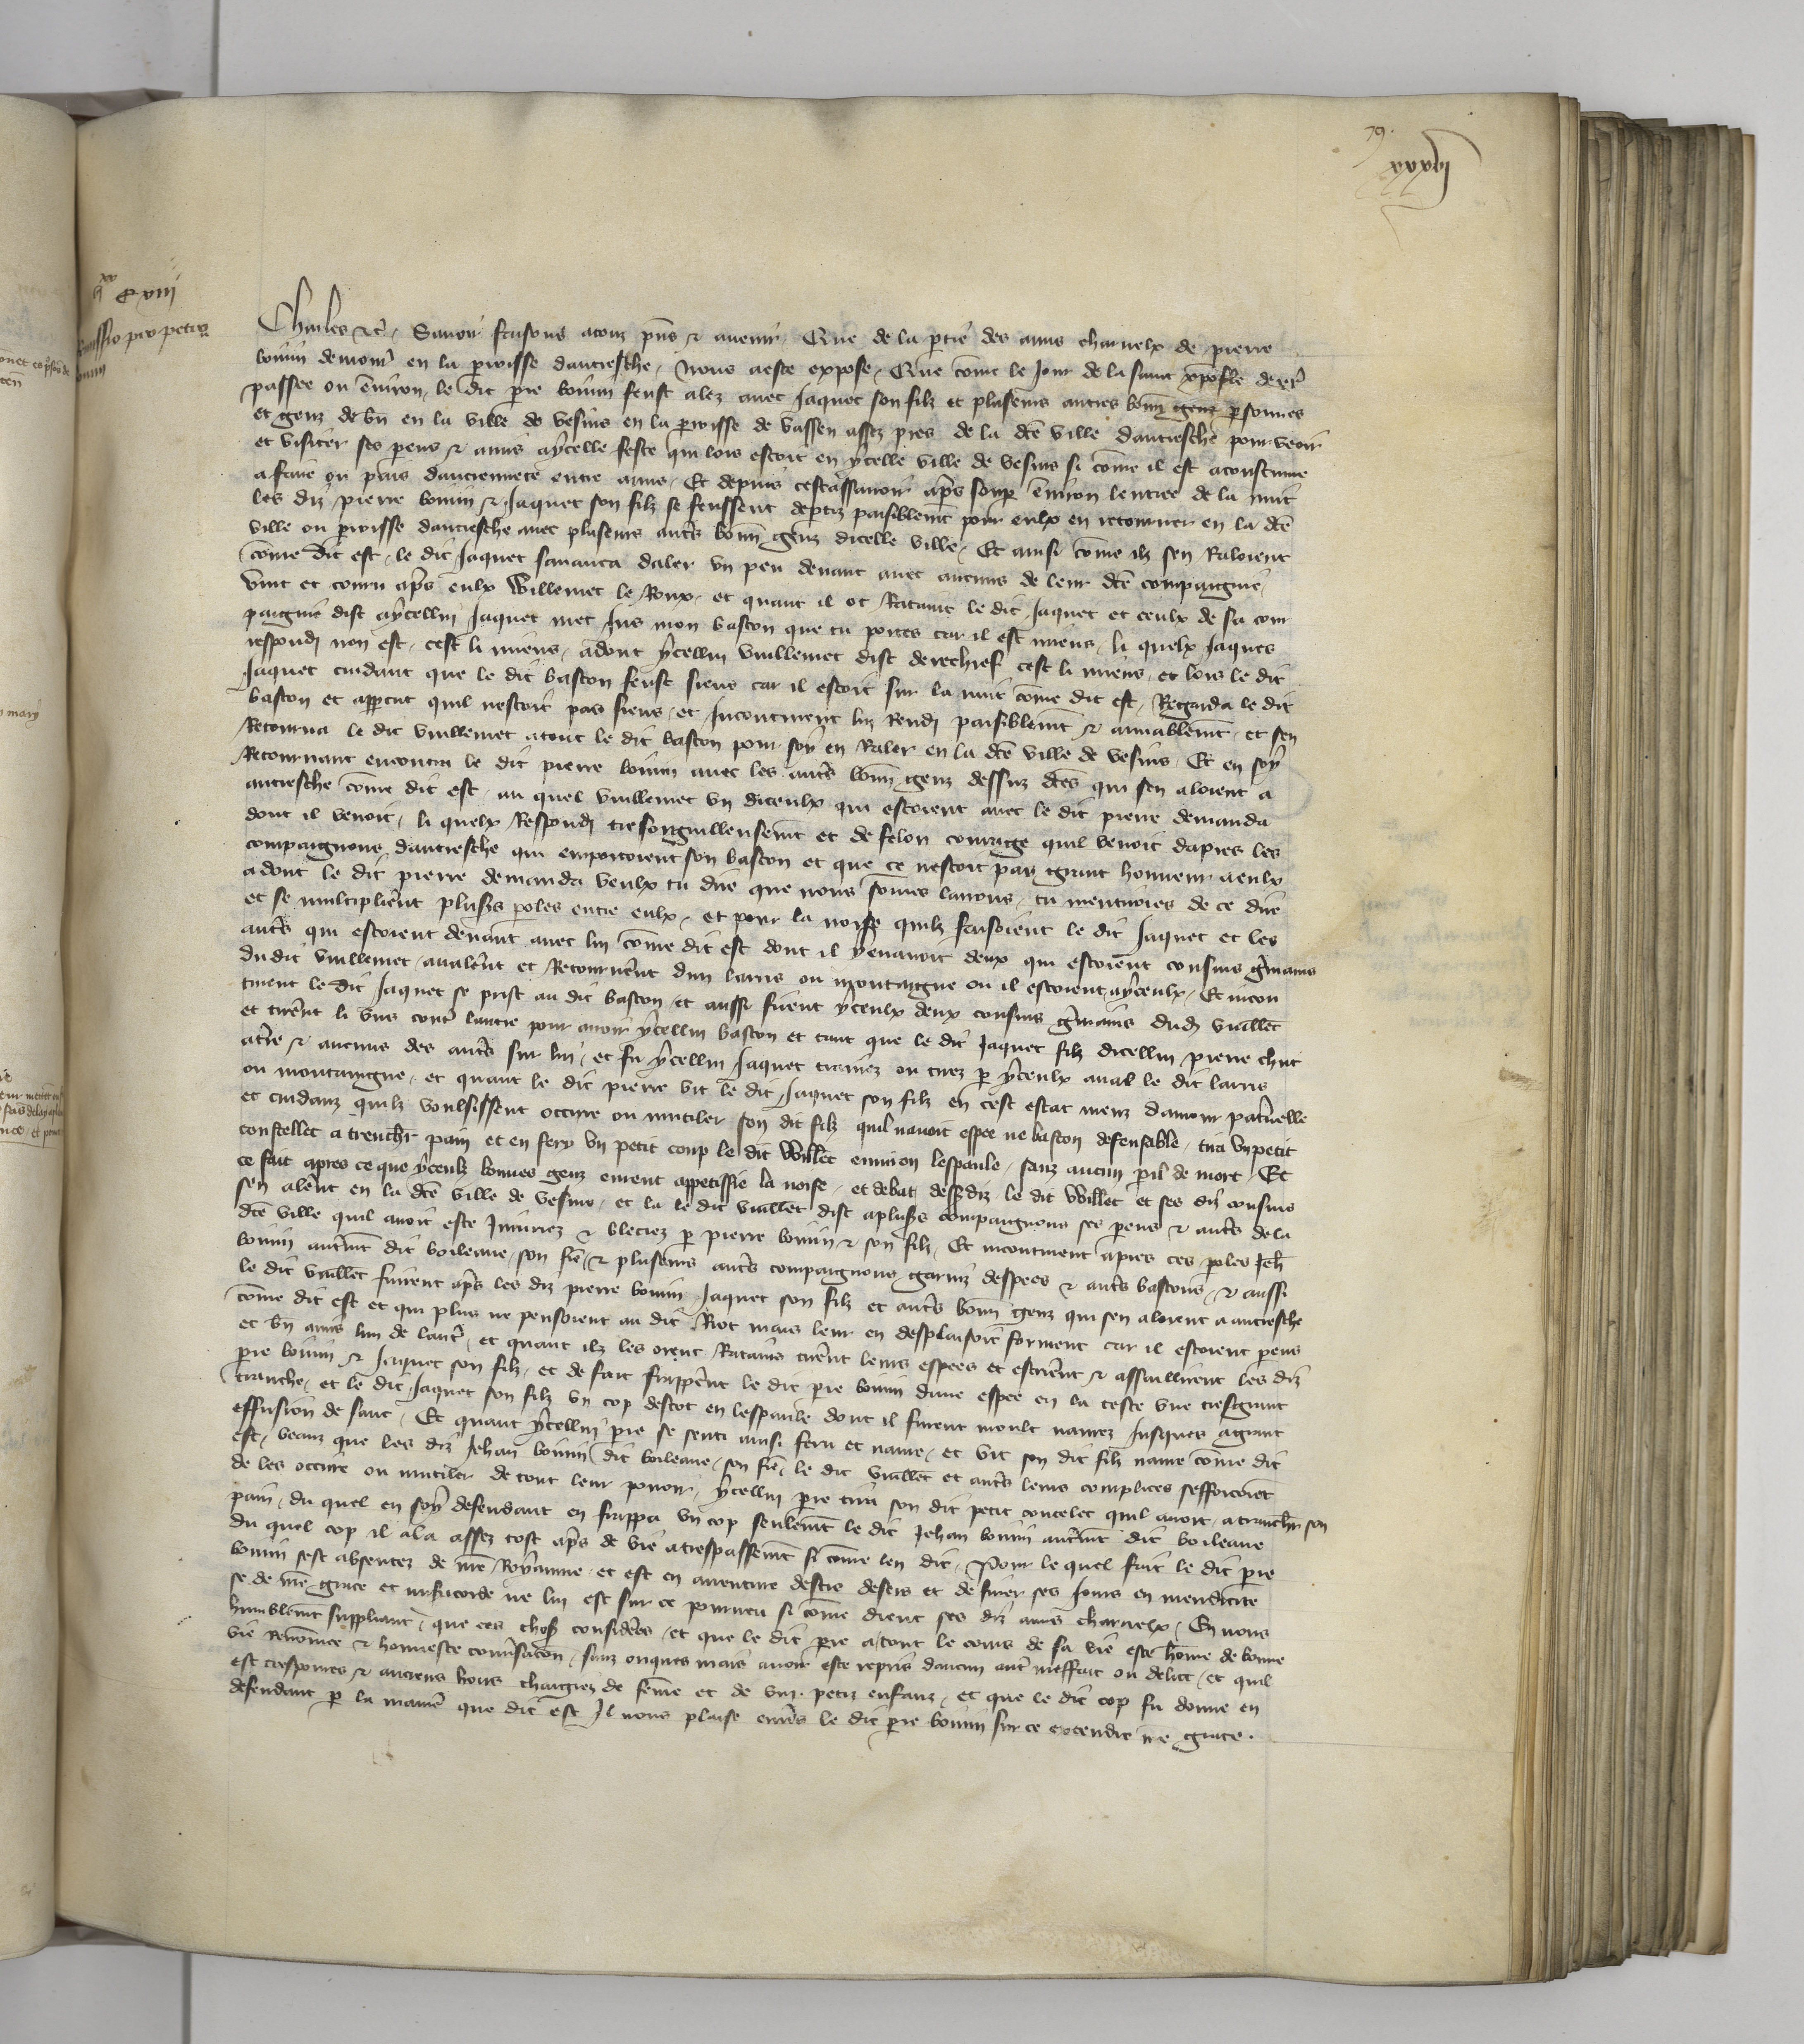 79.
xxxvj
iiijxx & viij
Remissio pro petro
bouin
Charles &c. Sauoir faisons a touz p̄ns & auenir. Que de la p̄tie des amis charnelx de pierre
bouin demour̄ en la p̄roisse dautresche, nous a este expose, Que cōme le Jour de la saint xp̄ofle derr̄
passee ou ēnuiron, le dit p̄re bouin feust alez auec Jaquet son filz et pluseurs autres bonn̄ genz p̄sonnes
et genz de bn̄ en la ville de vesins en la p̄roisse de vassen assez pres de la dc̄e ville dautresche pour veoir
et visiter ses p̄ens & amis a ycelle feste qui lors estoit en ycelle ville de vesins si cōme il est acoustume
a faire ou pais danciennete entre amis, Et depuis cestassauoir ap̄s soup̄ ēnuiron lentree de la nuit
les diz pierre bouin & Jaquet son filz se feussent dep̄tiz paisiblemēt pour eulx en retourner en la dc̄e
ville ou p̄roisse dautresche auec pluseurs aut̄s bonn̄ genz dicelle ville, Et ainsi cōme ilz sen Raloient
cōme dit est, le dit Jaquet sauanca daler vn peu deuant auec aucuns de leur dc̄e compaignie,
vint et couru ap̄s eulx Willemet le Roux, et quant il ot Rataint le dit Jaquet et ceulx de sa com
paignie dist a ycellui Jaquet met Jus mon baston que tu portes car il est miens, li quelx Jaques
respondi non est, cest li miens, adont ycellui Vuillemet dist derechief cest li miens, et lors le dit
Jaquet cuidant que le dit baston feust siens car il estoit sur la nuit cōme dit est, Regarda le dit
baston et apperçut quil nestoit pas siens, et Incontinent lui Rendi paisiblemēt & amiablemēt, et sen
Retourna le dit Vuillemet a tout le dit baston pour soy en Raler en la dc̄e ville de vesins, Et en soy
Retournant encontra le dit pierre bouin auec les aut̄s bonn̄ genz dessuz dc̄es qui sen aloient a
autresche cōme dit est, au quel Vuillemet vn diceulx qui estoient auec le dit pierre demanda
dont il venoit, li quelx Respondi tresorguilleusemēt et de felon courage quil venoit dapres les
compaignons dautresche qui emportoient son baston et que ce nestoit pas grant honneur a eulx
adont le dit pierre demanda veulx tu dire que nous sōmes larrons, tu mentiroies de ce dire
et se multiplier̄ent plus̄s p̄oles entre eulx, et pour la noise quilz faisoient le dit Jaquet et les
aut̄s qui estoient deuant auec lui cōme dit est dont il y en auoit deux qui estoient cousins g̃mains
du dit Vuillemet, aualer̄ent et Retourner̄ent dun larris ou montaigne ou il estoient a yceulx, Et incon
tinent le dit Jaquet se prist au dit baston, et aussi firent yceulx deux cousins g̃mains dud Vuillet
et tirer̄ent li vns cont̄ lautre pour auoir ycellui baston et tant que le dit Jaquet filz dicellui pierre chut
a tr̄e & aucuns des aut̄s sur lui, et fu ycellui Jaquet trainez ou tirez p̄ yceulx aual le dit larris
ou montaingne, et quant le dit pierre vit le dit Jaquet son filz en cest estat meuz damour pat̄nelle
et cuidanz quilz voulsissent occirre ou mutiler son dit filz quil nauoit espee ne baston defensable, tira vn petit
coustellet a trencher pain et en fery vn petit coup le dit Willet enuiron lespaule, sanz aucun p̄il de mort, Et
ce fait apres ce que yceulz bonnes genz eurent appetissie la noise, et debat dessusdiz, le dit Willet et ses diz cousins
sen aler̄ent en la dc̄e ville de vesins, et la le dit Vuillet dist a plus̄s compaignons ses p̄ens & aut̄s de la
dc̄e ville quil auoit este Iniuriez & bleciez p̄ pierre bouin & son filz, Et incontinent apres ces p̄oles Jeh̄
bouin aut̄mēt dit boileaue, son fre, & pluseurs aut̄s compaignons garniz despees & aut̄s bastons, & aussi
le dit Vuillet suirent ap̄s les diz pierre bouin Jaquet son filz et aut̄s bonn̄ genz qui sen aloient a autresche
cōme dit est et qui plus ne pensoient au dit Riot mais leur en desplaisoit forment car il estoient p̄ens
et bn̄ amis lun de laut̄, et quant ilz les orent Ratains tirer̄ent leurs espees et escrier̄ent & assaillirent les diz
p̄re bouin & Jaquet son filz, et de fait frapper̄ent le dit p̄re bouin dune espee en la teste vne tresgrant
tranche, et le dit Jaquet son filz vn cop destoc en lespaule dont il furent moult naurez Jusques a grant
effusion de sanc, Et quant ycellui p̄re se senti ainsi feru et naure, et vit son dit filz naure cōme dit
est, veanz que les diz Jehan bouin dit boileaue, son fre, le dit Vuillet et aut̄s leurs complices sefforcoient
de les occirre ou mutiler de tout leur pouoir, ycellui p̄re tira son dit petit coutelet quil auoit, a trancher son
pain, du quel en soy defendant en frappa vn cop seulemēt le dit Jehan bouin aut̄mēt dit boileaue
du quel cop il ala assez tost ap̄s de vie a trespassemēt si cōme len dit, Pour le quel fait le dit p̄re
bouin sest absentez de nr̄e Royaume, et est en auenture destre desers et de finer ses Jours en mendicite
se de nr̄e grace et misericorde ne lui est sur ce pourueu si cōme dient ses diz amis charnelx, En nous
humblemēt suppliant, que ces chos̄ consider̄ees, et que le dit p̄re a tout le cours de sa vie este hōme de bonne
vie Renōmee & honneste conu̇sacōn, sanz onques mais auoir este repris daucun aut̄ meffait ou delict, et quil
est tres poures & anciens homs chargiez de fēme et de viij. petiz enfanz, et que le dit cop fu donne en
defendant p̄ la manier̄ que dit est Il nous plaise enu̇s le dit p̄re bouin sur ce extendre nr̄e grace.